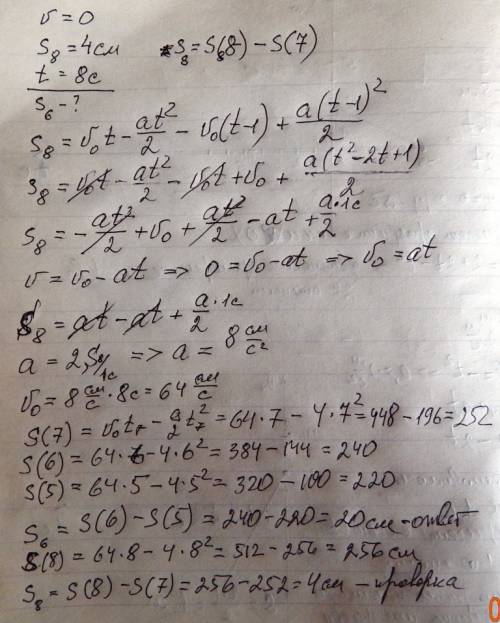 v = 0
S₈ = 4см   S₈ = S(8) − S(7)
t = 8с
S₆ − ?
S₈ = v₀t − at²/2 − v₀(t−1) + a(t−1)²/2
S₈ = v₀t − at²/2 − v₀t + v₀ + a(t²−2t+1)/2
S₈ = −at²/2 + v₀ + at²/2 − at + a·1с/2
v = v₀ − at => 0 = v₀ − at => v₀ = at
S₈ = at − at + a·1с/2
a = 2S₈/1с => a = 8 см/с²
v₀ = 8 см/с · 8с = 64 см/с
S(7) = v₀t₇ − a/2 t₇² = 64·7 − 4·7² = 448 − 196 = 252
S(6) = 64·6 − 4·6² = 384 − 144 = 240
S(5) = 64·5 − 4·5² = 320 − 100 = 220
S₆ = S(6) − S(5) = 240 − 220 = 20см − ответ
S(8) = 64·8 − 4·8² = 512 − 256 = 256см
S₈ = S(8) − S(7) = 256 − 252 = 4см − проверка